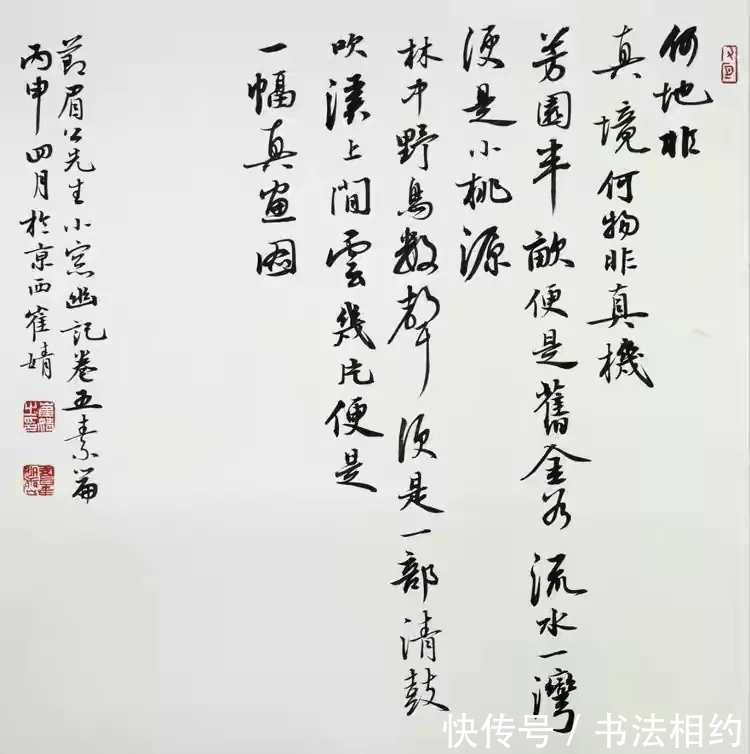 何地非
真境何物非真機
芳園半畝便是舊金谷流水一灣
便是小桃源
林中野鳥數聲便是一部清鼓
吹溪上間雲幾片便是
一幅真畫圖
節眉公先生小窓幽記卷五素篇
丙申四月於京西崔婧
快传号 / 书法相约